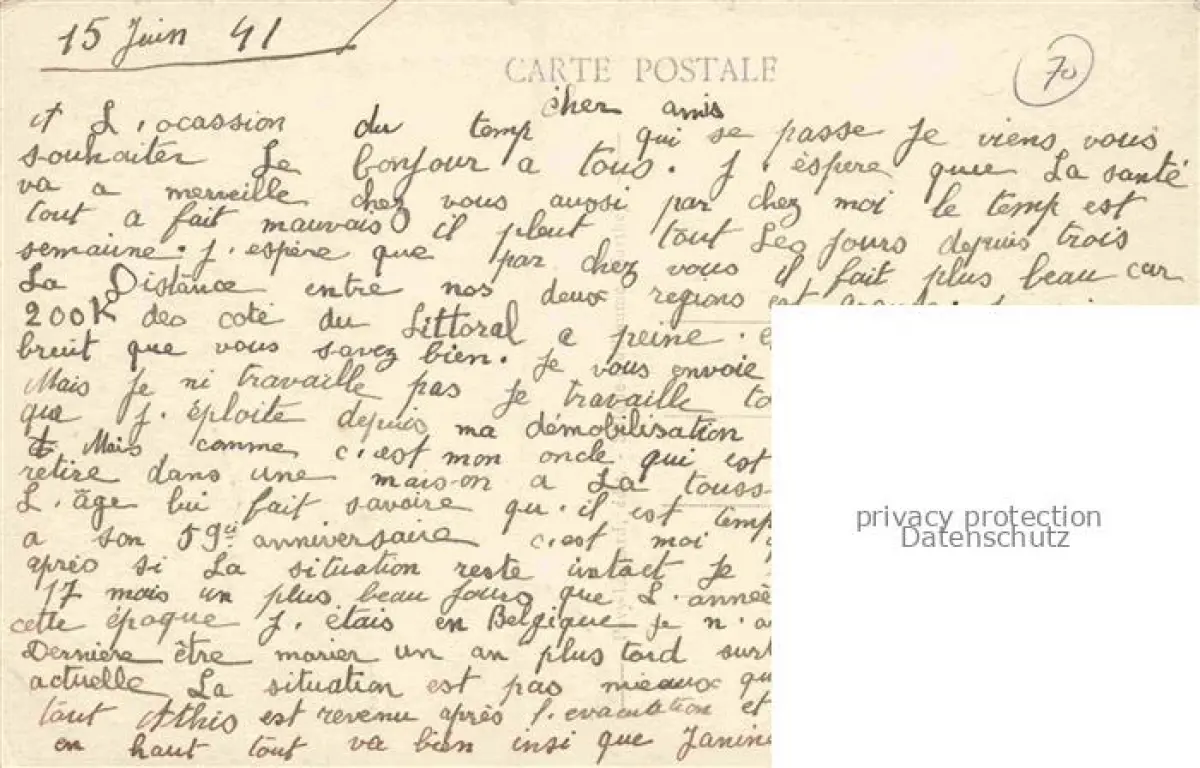 15 Juin 41
70
CARTE POSTALE
cher amis
A L'ocassion du temp qui se passe Je viens vous
souhaiter Le bonjour a tous. J'éspere que La santé
va a merveille chez vous aussi par chez moi le temp est
tout a fait mauvais il pleut tout Les jours depuis trois
semaine. J'espère que par chez vous il fait plus beau car
La Distance entre nos deux regions est
200K des coté du Littoral a peine
bruit que vous savez bien. Je vous envoie
Mais Je ni travaille pas Je travaille
que J'éploite depuis ma démobilisation
Mais comme c'est mon oncle qui est
retire dans une maison a La Touss
L'âge lui fait savoire qu'il est temp
a son 59 anniversaire c'est moi
après si La situation reste intact Je
17 mois un plus beau Jours que L'année
cette époque J'étais en Belgique Je n'a
Derniere être marier un an plus tard surt
actuelle La situation est pas mieaux qu
tout Athis est revenu après l'evacuation et
en haut tout va bien insi que Janine
privacy protection
Datenschutz